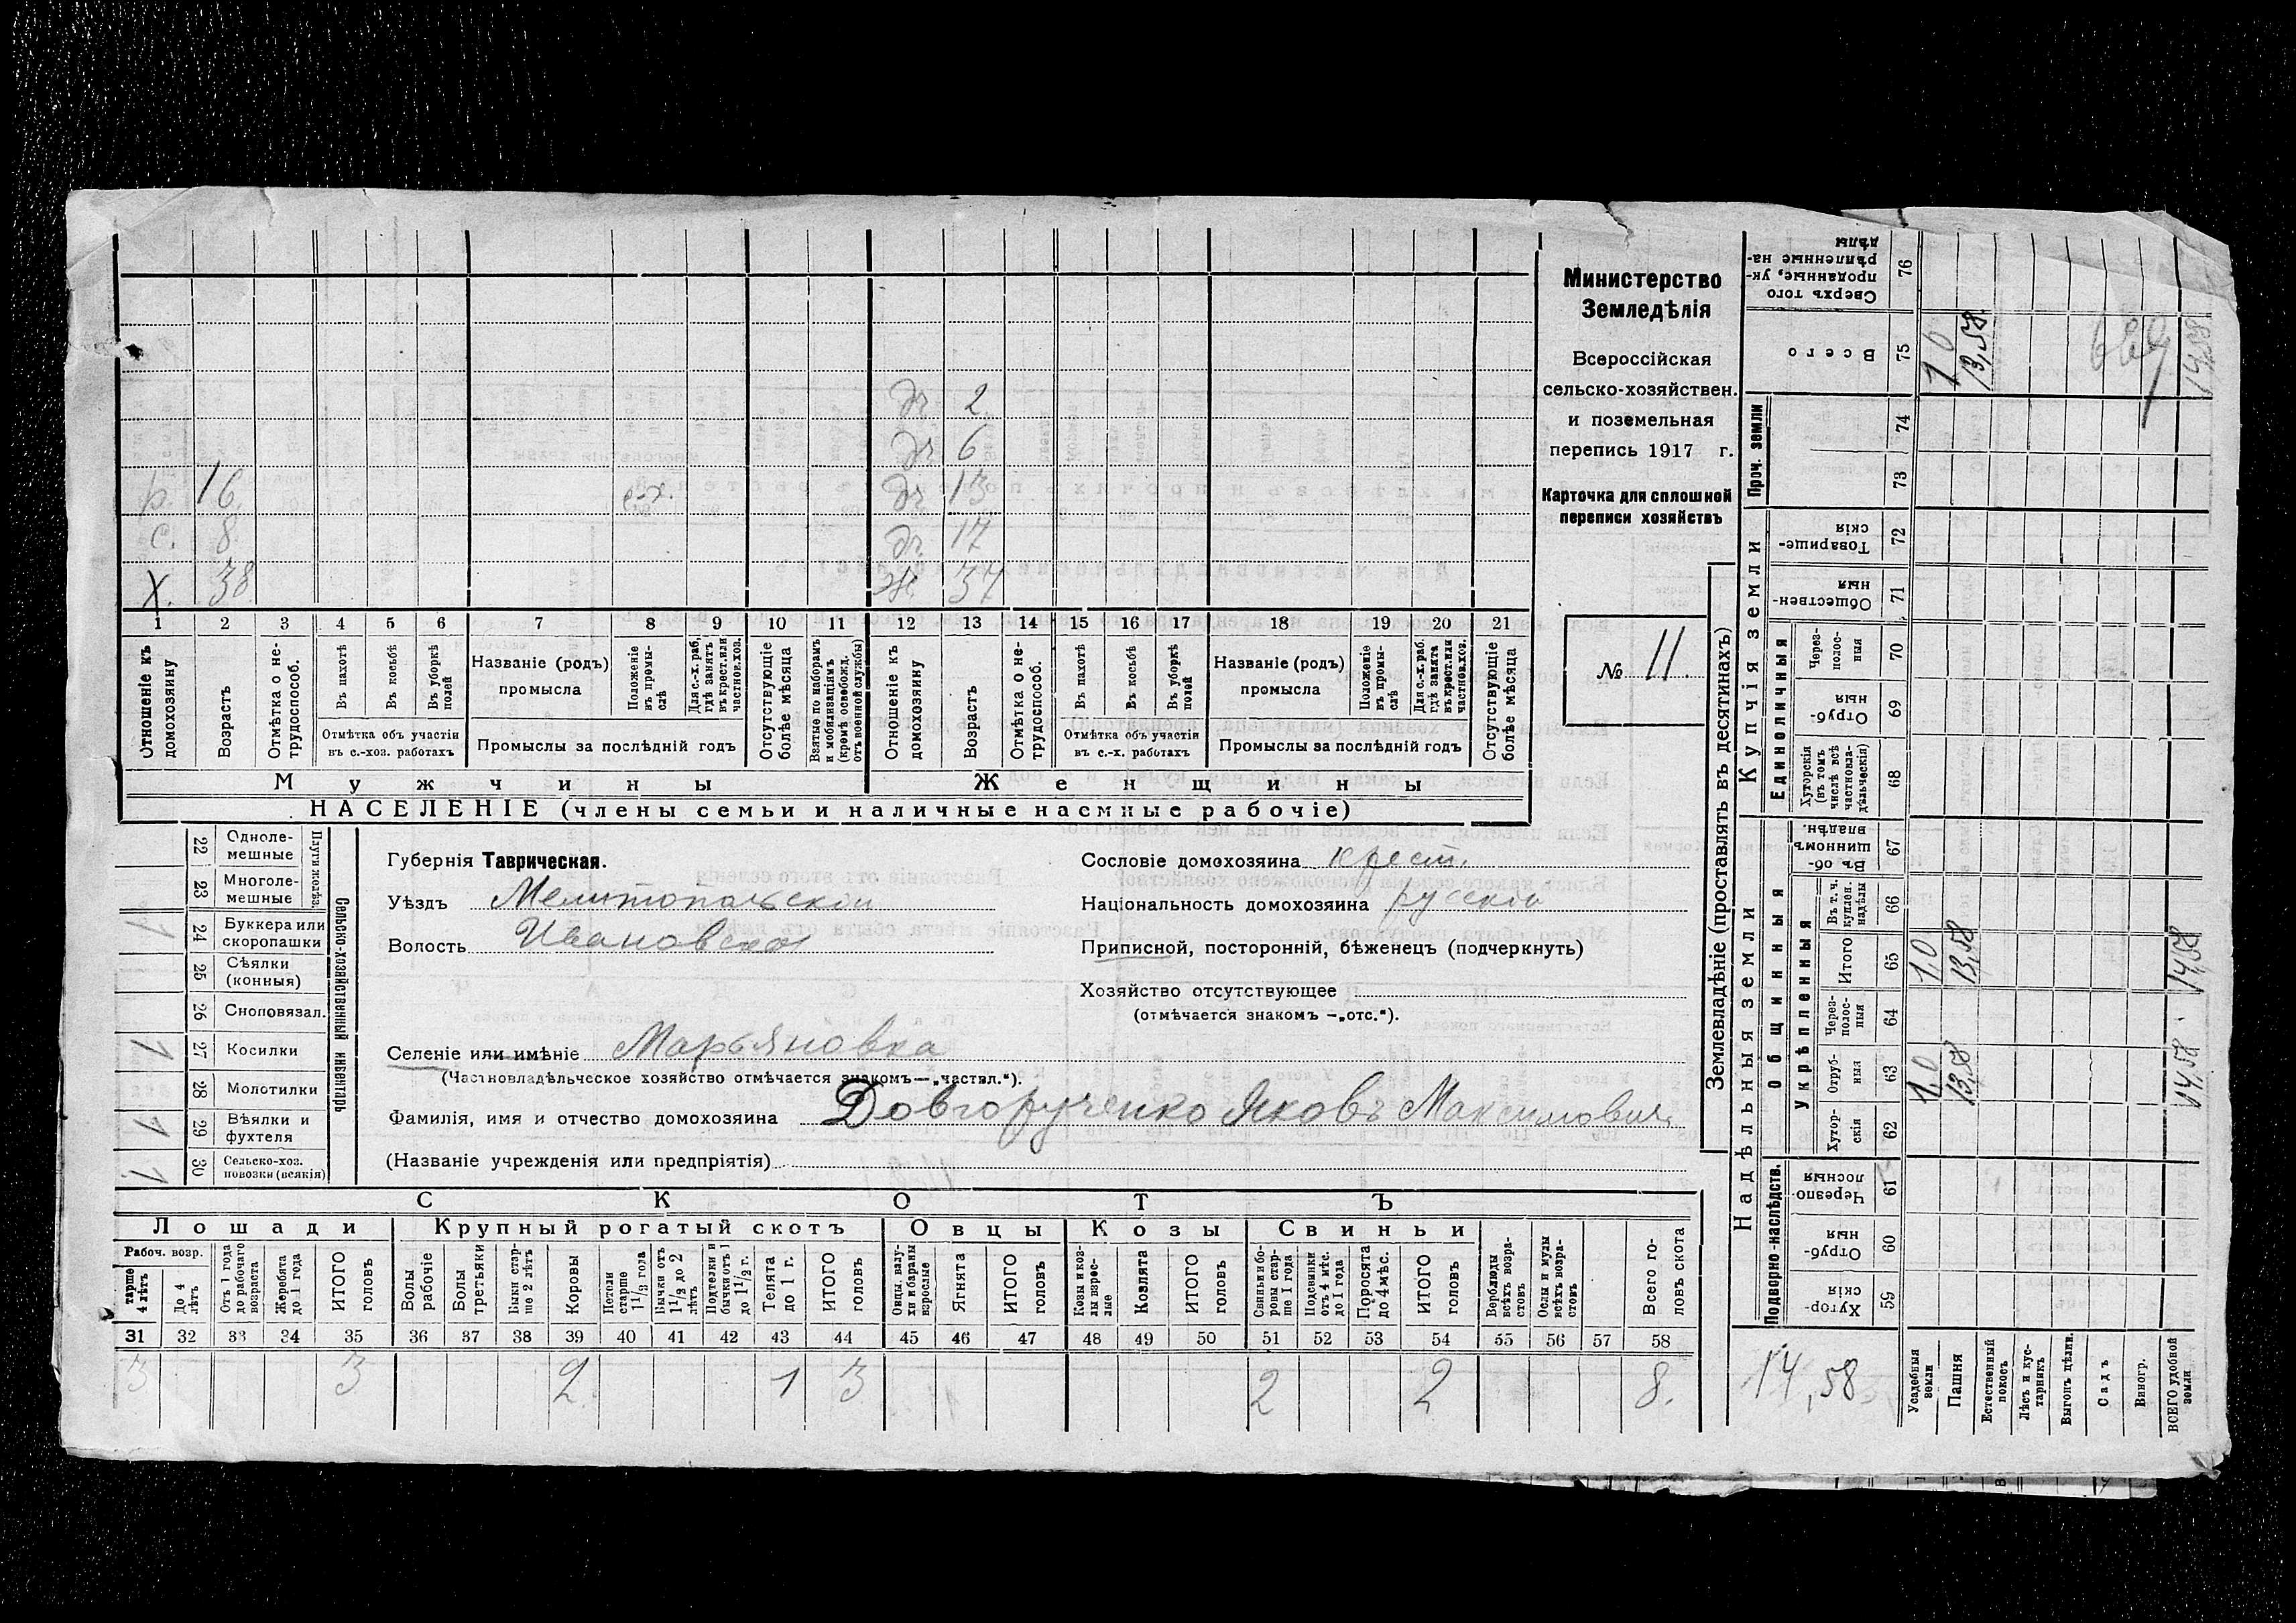 Министерство
Земледѣлія
Всероссійская
сельско-хозяйствен.
и поземельная
перепись 1917 г.
Карточка для сплошной
переписи хозяйствъ
№ 11.
др. 2
др. 6
р. 16 с-х. др. 13
с. 8 др. 17
х. 38 ж. 37
1 2 3 4 5 6 7 8 9 10 11 12 13 14 15 16 17 18 19 20 21
Отношеніе къ домохозяину
Возрастъ
Отмѣтка о нетрудоспособ.
Въ пахотѣ
Въ косьбѣ
Въ уборкѣ полей
Отмѣтка объ участіи
въ с.-хоз. работахъ
Названіе (родъ)
промысла
Положеніе въ промыслѣ
Для с.-х. раб., гдѣ занятъ въ крест. или частнов. хоз.
Промыслы за послѣдній годъ
Отсутствующіе болѣе мѣсяца
Взятые по наборамъ и мобилизаціямъ (кромѣ освобожд. отъ военной службы)
Отношеніе къ домохозяину
Возрастъ
Отмѣтка о нетрудоспособ.
Въ пахотѣ
Въ косьбѣ
Въ уборкѣ полей
Отмѣтка объ участіи
въ с.-х. работахъ
Названіе (родъ)
промысла
Положеніе въ промыслѣ
Для с.-х. раб. гдѣ занята въ крест. или частнов. хоз.
Промыслы за послѣдній годъ
Отсутствующіе болѣе мѣсяца
Мужчины Женщины
НАСЕЛЕНІЕ (члены семьи и наличные наемные рабочіе)
Сельско-хозяйственный инвентарь
Плуги желѣз.
22 Однолемешные
23 Многолемешные
24 Буккера или скоропашки 1
25 Сѣялки (конныя)
26 Сноповязал.
27 Косилки 1
28 Молотилки
29 Вѣялки и фухтеля 1
30 Сельско-хоз. повозки (всякія) 1
Губернія Таврическая.
Уѣздъ Мелитопольской
Волость Ивановской
Сословіе домохозяина крест.
Національность домохозяина русской
Приписной, посторонній, бѣженецъ (подчеркнуть)
Хозяйство отсутствующее
(отмѣчается знакомъ —„отс.“).
Селеніе или имѣніе Марьяновка
(Частновладѣльческое хозяйство отмѣчается знакомъ—„частвл.“).
Фамилія, имя и отчество домохозяина Довгорученко Яковъ Максимович
(Названіе учрежденія или предпріятія)
СКОТЪ
Лошади Крупный рогатый скотъ Овцы Козы Свиньи
Рабоч. возр.
старше 4 лѣтъ
До 4 лѣтъ
Отъ 1 года до рабочаго возраста
Жеребята до 1 года
ИТОГО головъ
Волы рабочіе
Волы третьяки
Быки старше 2 лѣтъ
Коровы
Нетели старше 1 1/2 года
Бычки отъ 1 1/2 до 2 лѣтъ
Подтелки и бычки отъ 1 до 1 1/2 г.
Телята до 1 г.
ИТОГО головъ
Овцы, валухи и бараны взрослые
Ягнята
ИТОГО головъ
Козы и козлы взрослые
Козлята
ИТОГО головъ
Свиньи и боровы старше 1 года
Подсвинки отъ 4 мѣс. до 1 года
Поросята до 4 мѣс.
ИТОГО головъ
Верблюды всѣхъ возрастовъ
Ослы и мулы всѣхъ возрастовъ
Всего головъ скота
31 32 33 34 35 36 37 38 39 40 41 42 43 44 45 46 47 48 49 50 51 52 53 54 55 56 57 58
3 3 2 1 3 2 2 8.
Землевладѣніе (проставлять въ десятинахъ)
Надѣльныя земли
Купчія земли
Проч. земли
Подворно-наслѣдств.
Общинныя
Укрѣпленныя
Единоличныя
Сверхъ того проданные, укрѣпленные надѣлы 76
Всего 75 1,0 13,58 14,58
74
73
Товарищескія 72
Общественныя 71
Черезполосныя 70
Отрубныя 69
Хуторскія (въ томъ числѣ всѣ частновладѣльческія) 68
Въ общинномъ владѣн. 67
Въ т. ч. куплен. надѣлы 66
Итого 65 1,0 13,58 14,58
Черезполосныя 64
Отрубныя 63 1,0 13,58 14,58
Хуторскія 62
Черезполосныя 61
Отрубныя 60
Хуторскія 59
14,58
Усадебныя земли
Пашня
Естественный покосъ
Лѣсъ и кустарникъ
Выгонъ цѣлин.
Садъ
Виногр.
ВСЕГО удобной земли